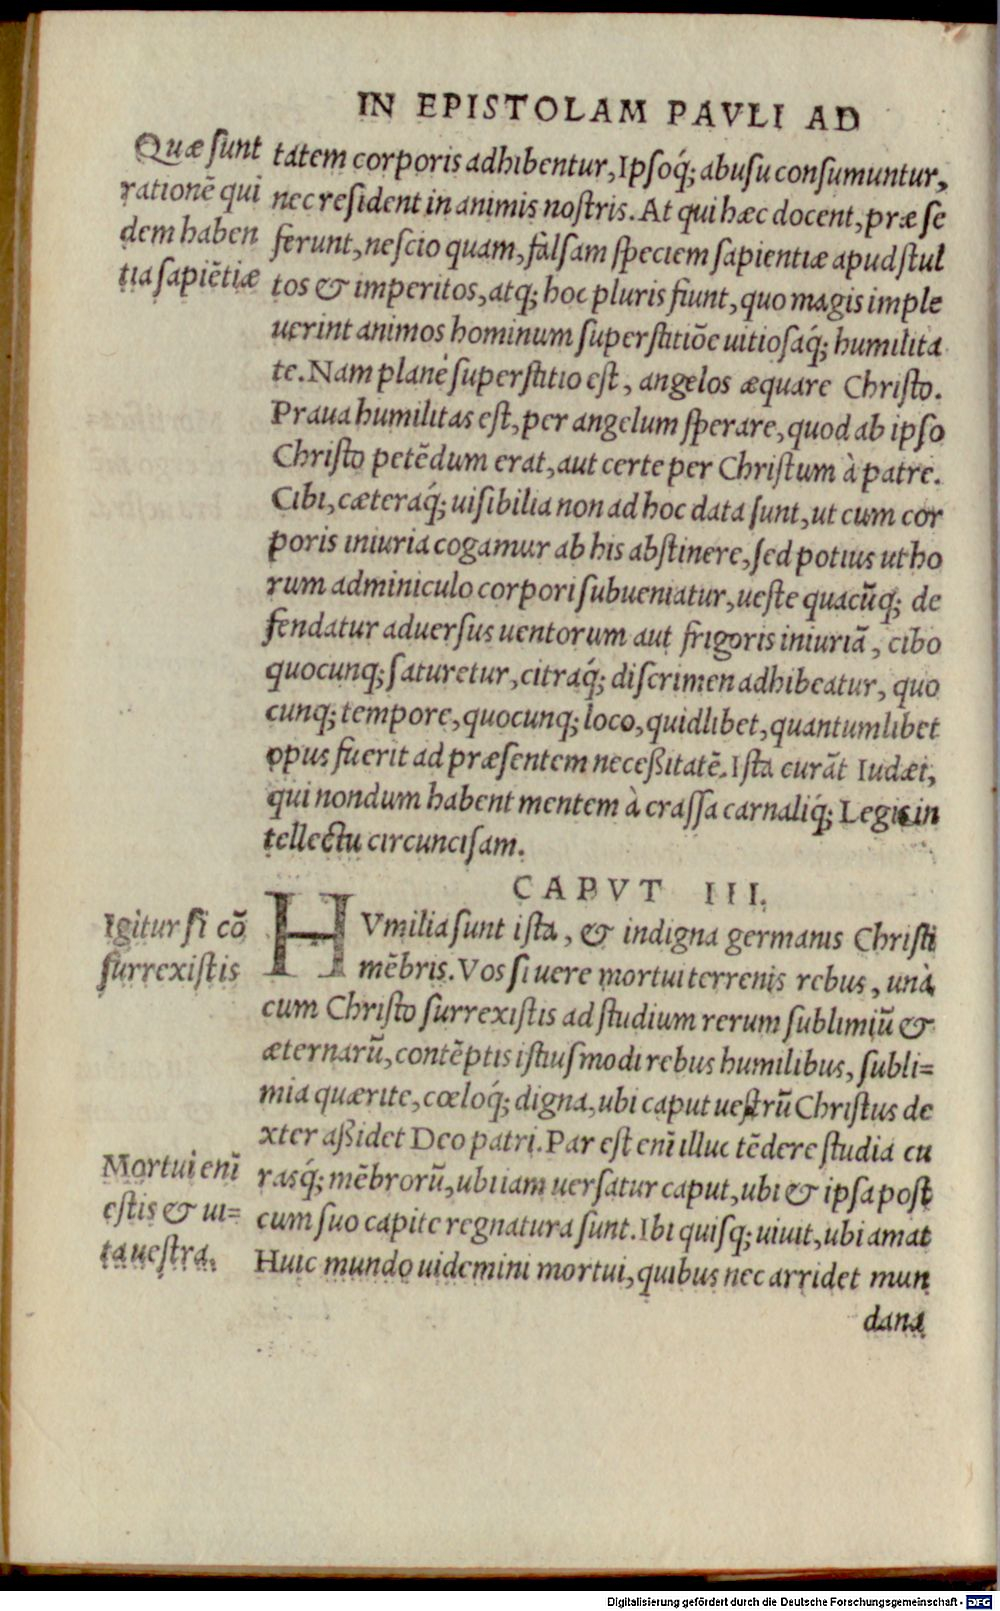 IN EPISTOLAM PAVLI AD
Quæ sunt
rationē qui
dem haben
tia sapiētiæ
tatem corporis adhibentur, Ipsoq́; abusu consumuntur,
nec resident in animis nostris. At qui hæc docent, præ se
ferunt, nescio quam, falsam speciem sapientiæ apud stul
tos & imperitos, atq; hoc pluris fiunt, quo magis imple
uerint animos hominum superstitiõe uitiosaq́; humilita
te. Nam planè superstitio est, angelos æquare Christo.
Praua humilitas est, per angelum sperare, quod ab ipso
Christo petēdum erat, aut certe per Christum à patre.
Cibi, cæteraq́; uisibilia non ad hoc data sunt, ut cum cor
poris iniuria cogamur ab his abstinere, sed potius ut ho
rum adminiculo corpori subueniatur, ueste quacūq; de
fendatur aduersus uentorum aut frigoris iniuriā, cibo
quocunq; saturetur, citraq́; discrimen adhibeatur, quo
cunq; tempore, quocunq; loco, quidlibet, quantumlibet
opus fuerit ad præsentem necessitatē. Ista curāt Iudæi,
qui nondum habent mentem à crassa carnaliq́; Legis in
tellectu circuncisam.
CAPVT III.
Igitur si cō
surrexistis
HVmilia sunt ista, & indigna germanis Christi
mēbris. Vos si uere mortui terrenis rebus, unà
cum Christo surrexistis ad studium rerum sublimiū &
æternarū, contēptis istiusmodi rebus humilibus, subli=
mia quærite, cœloq́; digna, ubi caput uestrū Christus de
xter assidet Deo patri. Par est enī illuc tēdere studia cu
rasq́; mēbrorū, ubi iam uersatur caput, ubi & ipsa post
cum suo capite regnatura sunt. Ibi quisq; uiuit, ubi amat
Huic mundo uidemini mortui, quibus nec arridet mun
Mortui enī
estis & ui=
ta uestra.
dana
Digitalisierung gefördert durch die Deutsche Forschungsgemeinschaft - DFG